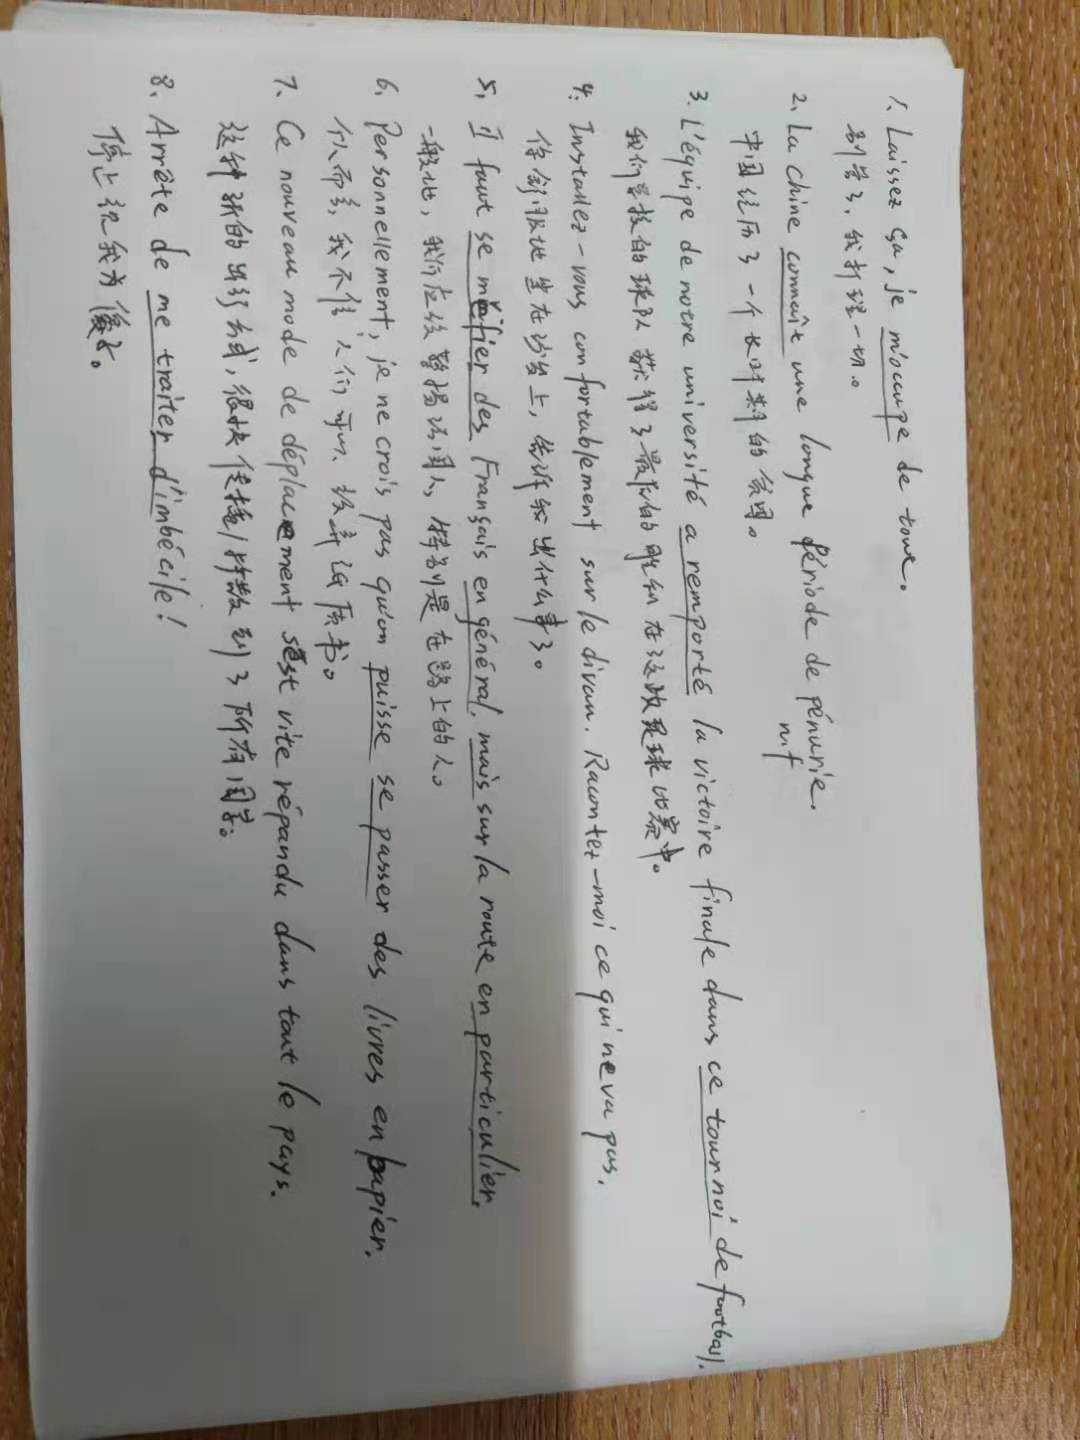 1. Laissez ça, je m'occupe de tout.
别管了，我打理一切。
2. La Chine connaît une longue période de pénurie.
n.f
中国经历了一个长时期的贫困。
3. L'équipe de notre université a remporté la victoire finale dans ce tournoi de football.
我们学校的球队获得了最后的胜利在这政足球比赛中。
4. Installez-vous confortablement sur le divan. Racontez-moi ce qui ne va pas.
你舒服地坐在沙发上，告诉我出什么事了。
5. Il faut se méfier des Français en général, mais sur la route en particulier.
一般地，我们应该警惕法国人，特别是在路上的人。
6. Personnellement, je ne crois pas qu'on puisse se passer des livres en papier.
个人而言，我不信人们可以放弃纸质书。
7. Ce nouveau mode de déplacement s'est vite répandu dans tout le pays.
这种新的出行方式，很快传播/扩散到了所有国家。
8. Arrête de me traiter d'imbécile!
停止视我为傻子。